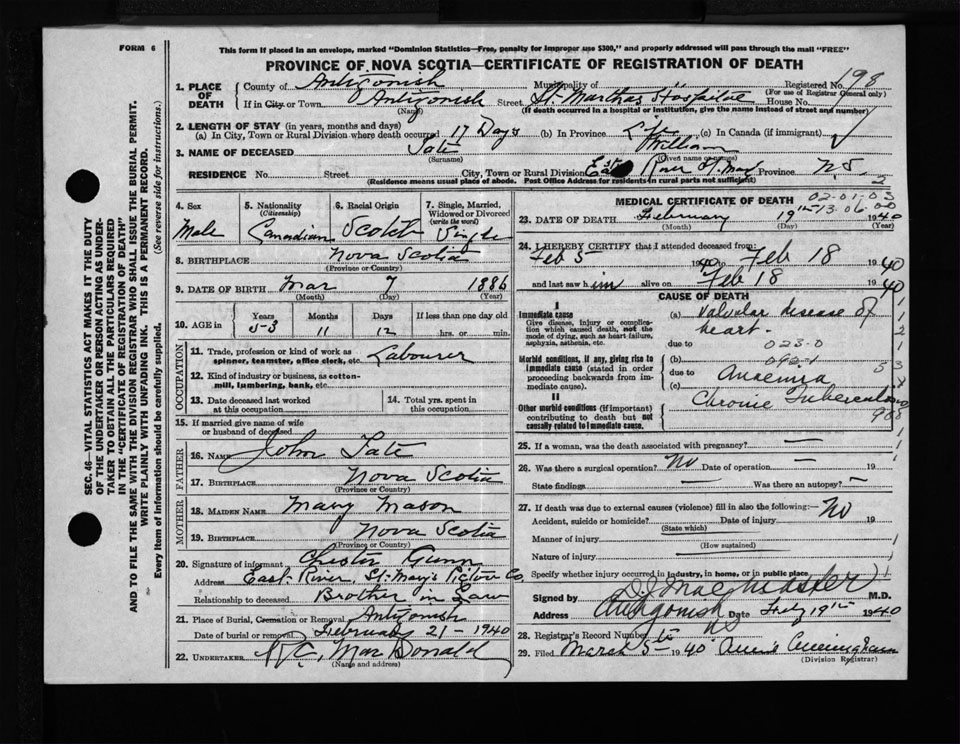 FORM 6
This form if placed in an envelope, marked "Dominion Statistics—Free, penalty for improper use $300," and properly addressed will pass through the mail "FREE"
PROVINCE OF NOVA SCOTIA—CERTIFICATE OF REGISTRATION OF DEATH
SEC. 46—VITAL STATISTICS ACT MAKES IT THE DUTY
OF THE UNDERTAKER OR PERSON ACTING AS UNDER-
TAKER TO OBTAIN ALL THE PARTICULARS REQUIRED
IN THE "CERTIFICATE OF REGISTRATION OF DEATH"
AND TO FILE THE SAME WITH THE DIVISION REGISTRAR WHO SHALL ISSUE THE BURIAL PERMIT.
WRITE PLAINLY WITH UNFADING INK. THIS IS A PERMANENT RECORD.
Every item of Information should be carefully supplied. (See reverse side for instructions.)
1. PLACE OF DEATH County of Antigonish Municipality of Registered No. 198
(For use of Registrar General only)
If in City or Town Antigonish Street St. Martha's Hospital House No.
(Name) (If death occurred in a hospital or institution, give the name instead of street and number)
2. LENGTH OF STAY (in years, months and days)
(a) In City, Town or Rural Division where death occurred 17 Days (b) In Province Life (c) In Canada (if immigrant)
3. NAME OF DECEASED Tate William
(Surname) (Given name or names)
RESIDENCE No. Street City, Town or Rural Division East River St Mary Province N.S.
(Residence means usual place of abode. Post Office Address for residents in rural parts not sufficient) 2
4. Sex Male
5. Nationality (Citizenship) Canadian
6. Racial Origin Scotch
7. Single, Married, Widowed or Divorced (write the word) Single
8. BIRTHPLACE Nova Scotia
(Province or Country)
9. DATE OF BIRTH Mar 7 1886
(Month) (Day) (Year)
10. AGE in Years 53 Months 11 Days 12 If less than one day old
hrs. or min.
OCCUPATION
11. Trade, profession or kind of work as spinner, teamster, office clerk, etc. Labourer
12. Kind of industry or business, as cotton-mill, lumbering, bank, etc.
13. Date deceased last worked at this occupation
14. Total yrs. spent in this occupation
15. If married give name of wife or husband of deceased
FATHER
16. NAME John Tate
17. BIRTHPLACE Nova Scotia
(Province or Country)
MOTHER
18. MAIDEN NAME Mary Mason
19. BIRTHPLACE Nova Scotia
(Province or Country)
20. Signature of informant Chester Gunn
Address East River, St. Mary's Pictou Co,
Relationship to deceased Brother in Law
21. Place of Burial, Cremation or Removal Antigonish
Date of burial or removal February 21 - 1940
22. UNDERTAKER MacDonald
(Name and address)
MEDICAL CERTIFICATE OF DEATH
02-01-03
13-06-00
23. DATE OF DEATH February 19th 1940
(Month) (Day) (Year)
24. I HEREBY CERTIFY that I attended deceased from:
Feb 5 1940 to Feb 18 1940
and last saw him alive on Feb 18 1940
CAUSE OF DEATH
I
Immediate cause
Give disease, injury or complication which caused death, not the mode of dying, such as heart failure, asphyxia, asthenia, etc.
(a) Valvular disease of heart.
due to 023-0
Morbid conditions, if any, giving rise to Immediate cause (stated in order proceeding backwards from immediate cause).
(b) 092-1
due to Anaemia
(c)
II
Other morbid conditions (if important) contributing to death but not causally related to Immediate cause.
Chronic
25. If a woman, was the death associated with pregnancy? —
26. Was there a surgical operation? No Date of operation — 19
State findings — Was there an autopsy? —
27. If death was due to external causes (violence) fill in also the following:— No
Accident, suicide or homicide? Date of injury 19
(State which)
Manner of injury
(How sustained)
Nature of injury
Specify whether injury occurred in industry, in home, or in public place
Signed by D.J. MacMaster M.D.
Address Antigonish Date Feby 19th 1940
28. Registrar's Record Number
29. Filed March 5 - 1940 Cunningham
(Division Registrar)